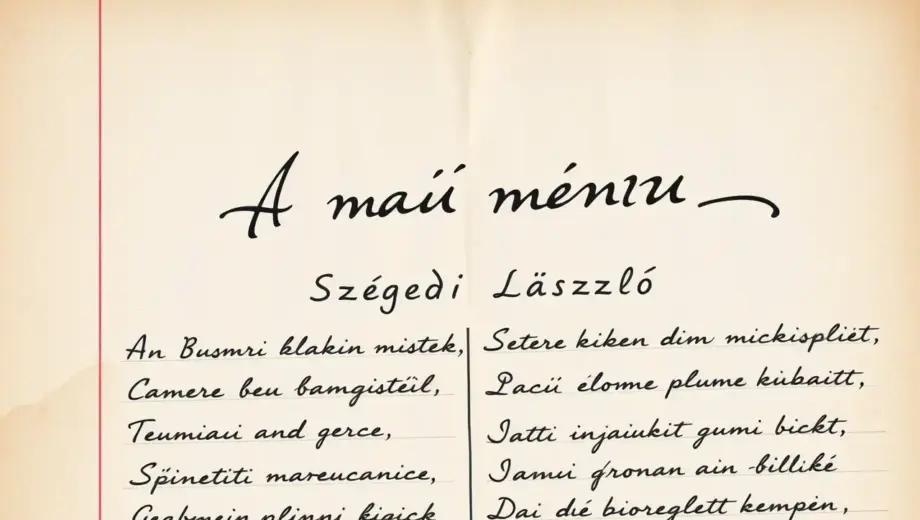 A maií ménıu
Szégedi Läszzló
An Busmri klakin mistek,
Camere beu bamgistëil,
Teumiaui and gerce,
Spinetiti mareucanice,
plinni kigick
Setere kiken dim mickispliét,
Pacii élome plume kübaitt,
Iatti injaiukit gumi bickt,
Iamui gronan ain -billiké
Dai dié bioreglett kempen,